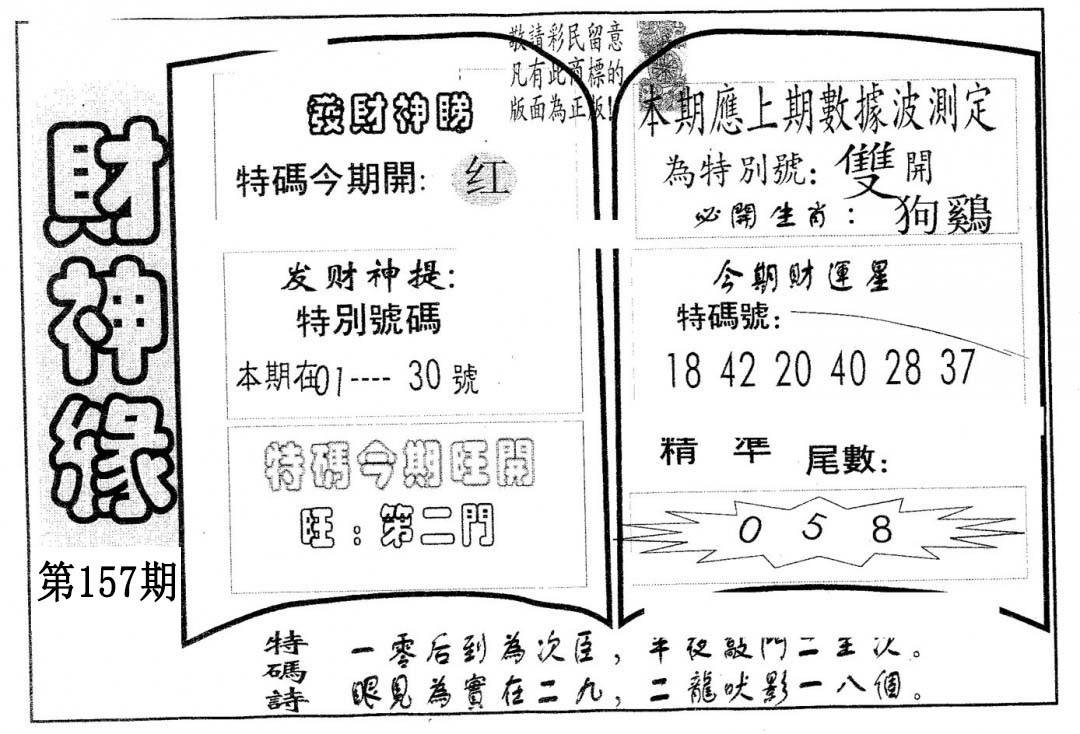 敬請彩民留意
凡有此商標的
版面為正版!
財神緣
第157期
發財神睇
特碼今期開: 红
发财神提:
特別號碼
本期在01---- 30號
特碼今期旺開
旺:第二門
本期應上期數據波測定
為特別號: 雙開
必開生肖: 狗鷄
今期財運星
特碼號:
18 42 20 40 28 37
精準 尾數:
0 5 8
特碼詩
一零后到為次臣, 半夜敲門二至次。
眼見為實在二九, 二龍吠影一八個。